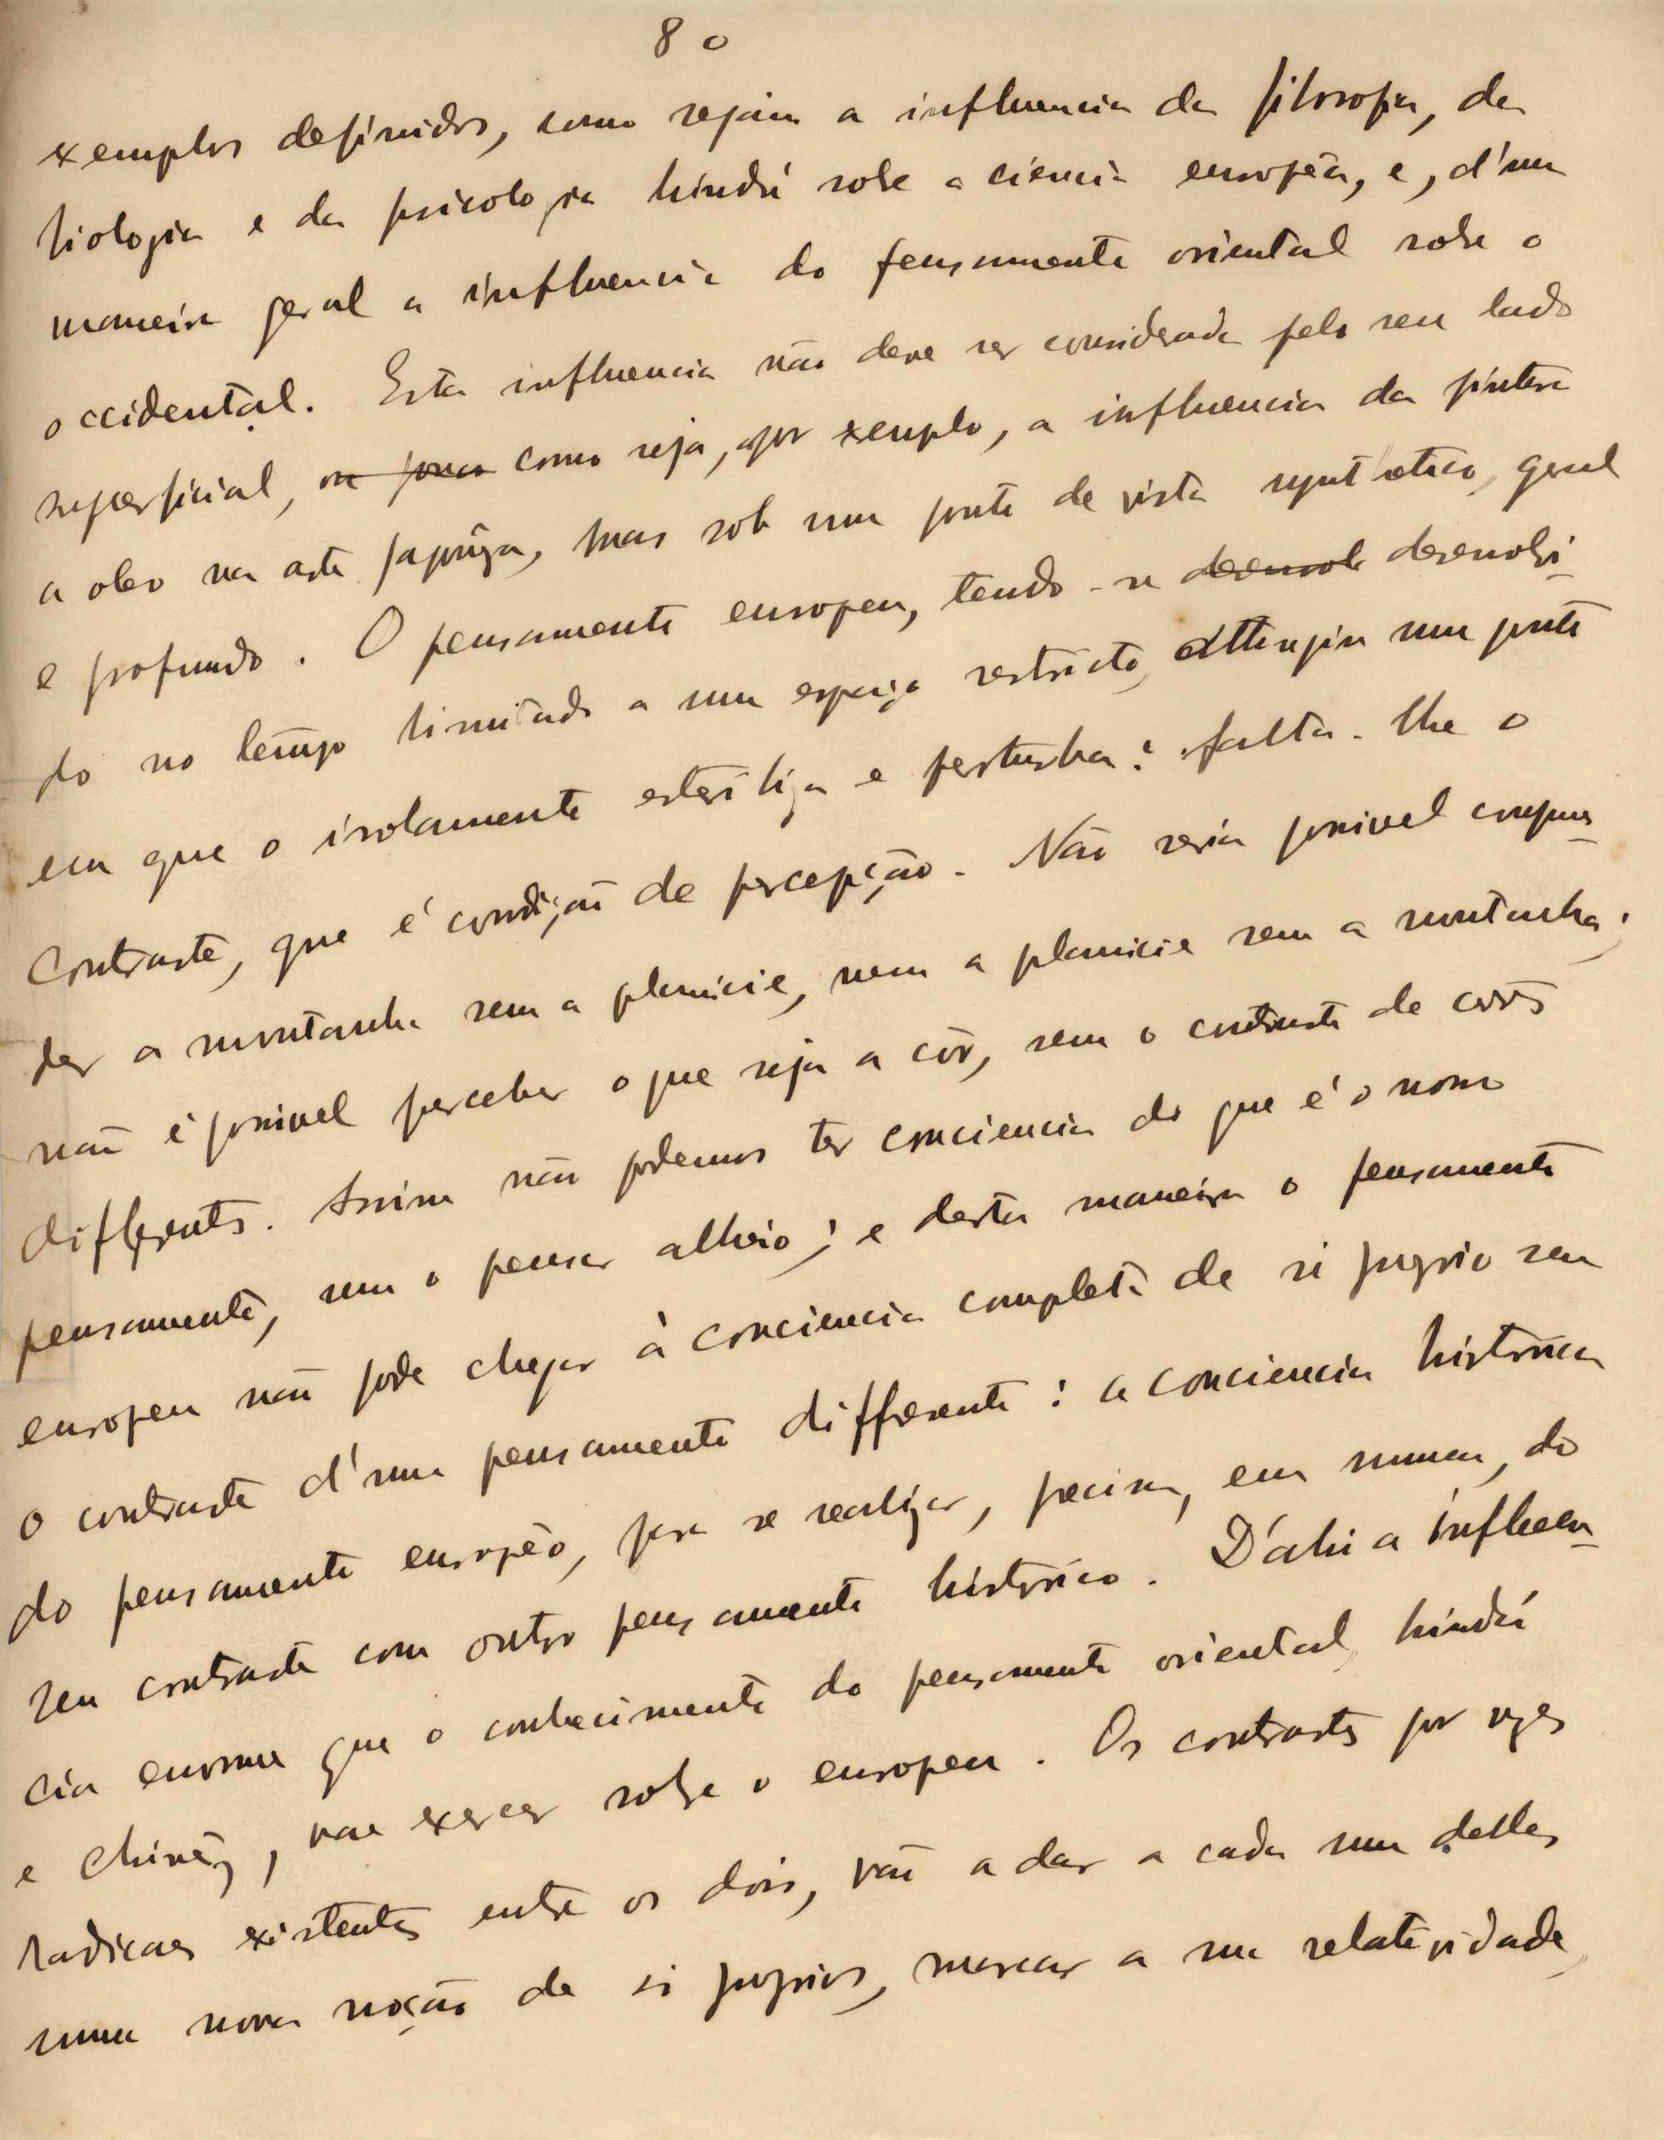 80
exemplos definidos, como sejam a influencia da filosofia, da
biologia e da psicologia hindú sobre a ciencia européa, e, d'uma
maneira geral a influencia do pensamento oriental sobre o
occidental. Esta influencia não deve ser considerada pelo seu lado
superficial, ou como seja, por exemplo, a influencia da pintura
a oleo na arte japonêza, mas sob um ponto de vista synthetico, geral
e profundo. O pensamento europeu, tendo-se desenvol desenvolvi-
do no tempo limitado a um espaço restricto, attingiu um ponto
em que o isolamento esteriliza e perturba: falta-lhe o
contraste, que é condição de percepção. Não seria possivel compreen-
der a montanha sem a planicie, nem a planicie sem a montanha;
não é possivel perceber o que seja a côr, sem o contraste de cores
differentes. Assim não podemos ter conciencia do que é o nosso
pensamento, sem o pensar alheio; e desta maneira o pensamento
europeu não pode chegar à conciencia completa de si proprio sem
o contraste d'um pensamento differente: a conciencia historica
do pensamento européo, para se realizar, precisa, em summa, do
seu contraste com outro pensamento historico. D'ahi a influen-
cia enorme que o conhecimento do pensamento oriental, hindú
e chinêz, vae exercer sobre o europeu. Os contrastes por vezes
radicaes existentes entre os dois, vão a dar a cada um delles
uma nova noção de si proprios, marcar a sua relatividade,